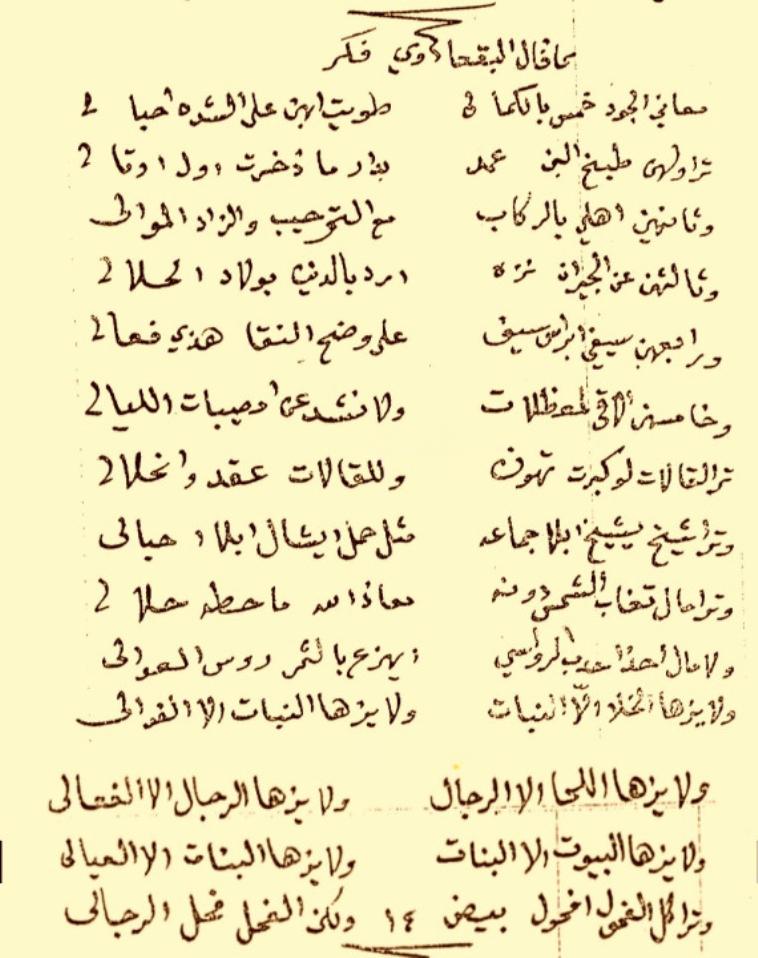 مما قال البقعاوي فكر
معاني الجود خمس بالكمالي طويت ابهن على الشده احبالي
تراولهن طبيخ البن عمد بدار ما ذخرت اول اوتالي
وثانهين اهلي بالركاب مع الترحيب والزاد الموالي
وثالثهن عن الجيران نزه ارد بالدنيه بولاد الحلالي
ورابعهن سيفي ابراس سيف على وضح النقا هذي فعالي
وخامسهن الاقي لمعظلات ولا نشد عن امصيبات الليالي
ترالقالات لو كبرت تهون وللقالات عقد وانحلالي
وتراشيخ يشيخ ابلا جماعه مثل حمل ايشال ابلا احبالي
وترا مال تغاب الشمس دونه معاذ الله ما حطه حلالي
ولا مال احذا حدب الرواسي ايهزع بالثمر روس العوالي
ولا يزها الخلا الّا النبات ولا يزها النبات الا الفوالي
ولا يزها اللحا الا الرجال ولا يزها الرجال الا الفعالي
ولا يزها البيوت الا البنات ولا يزها البنات الا العيالي
وترا كل الفحول افحول بيض ١٤ ولكن الفحل فحل الرجالي